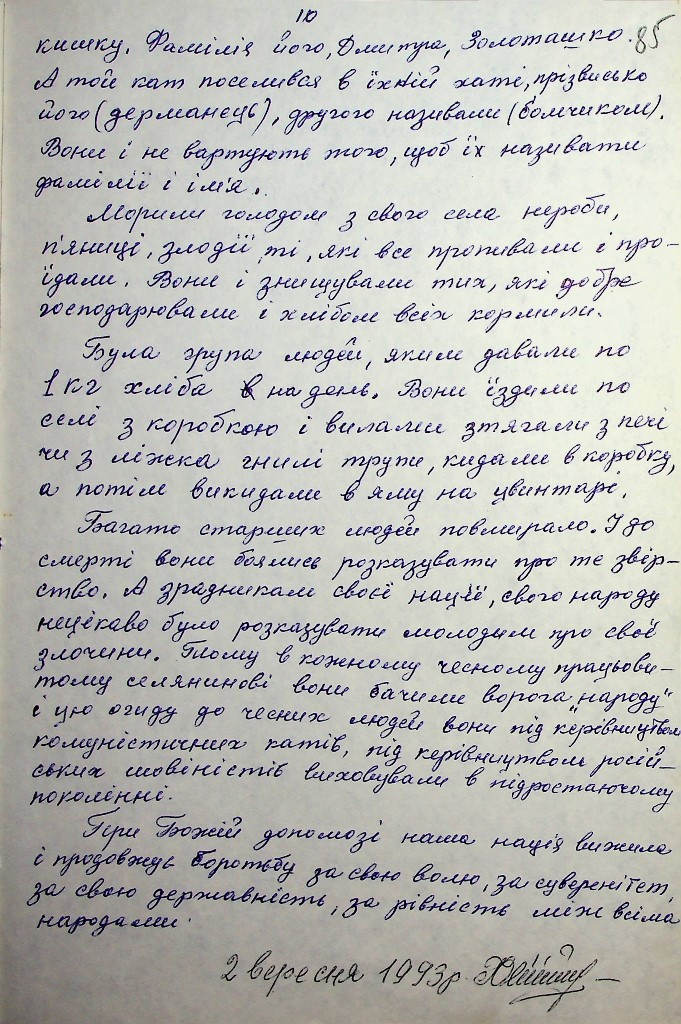 10
85
кишку. Фамілія його, Дмитра, Золоташко.
А той кат поселився в їхній хаті, прізвисько
його (дерманець), другого називали (бомчиком).
Вони і не вартують того, щоб їх називати
фамілії і ім'я.
Морили голодом з свого села нероби,
п'яниці, злодії, ті, які все пропивали і про-
їдали. Вони і знищували тих, які добре
господарювали і хлібом всіх кормили.
Була група людей, яким давали по
1 кг хліба в на день. Вони їздили по
селі з коробкою і вилами зтягали з печі
чи з ліжка гнилі трупи, кидали в коробку,
а потім викидали в яму на цвинтарі.
Багато старших людей повмирало. І до
смерті вони боялись розказувати про те звір-
ство. А зрадникам своєї нації, свого народу
нецікаво було розказувати молодим про свої
злочини. Тому в кожному чесному працьови-
тому селянинові вони бачили ворога „народу"
і цю огиду до чесних людей вони під керівництвом
комуністичних катів, під керівництвом росій-
ських шовіністів виховували в підростаючому
поколінні.
При Божій допомозі наша нація вижила
і продовжує боротьбу за свою волю, за суверенітет,
за свою державність, за рівність між всіма
народами.
2 вересня 1993 р.